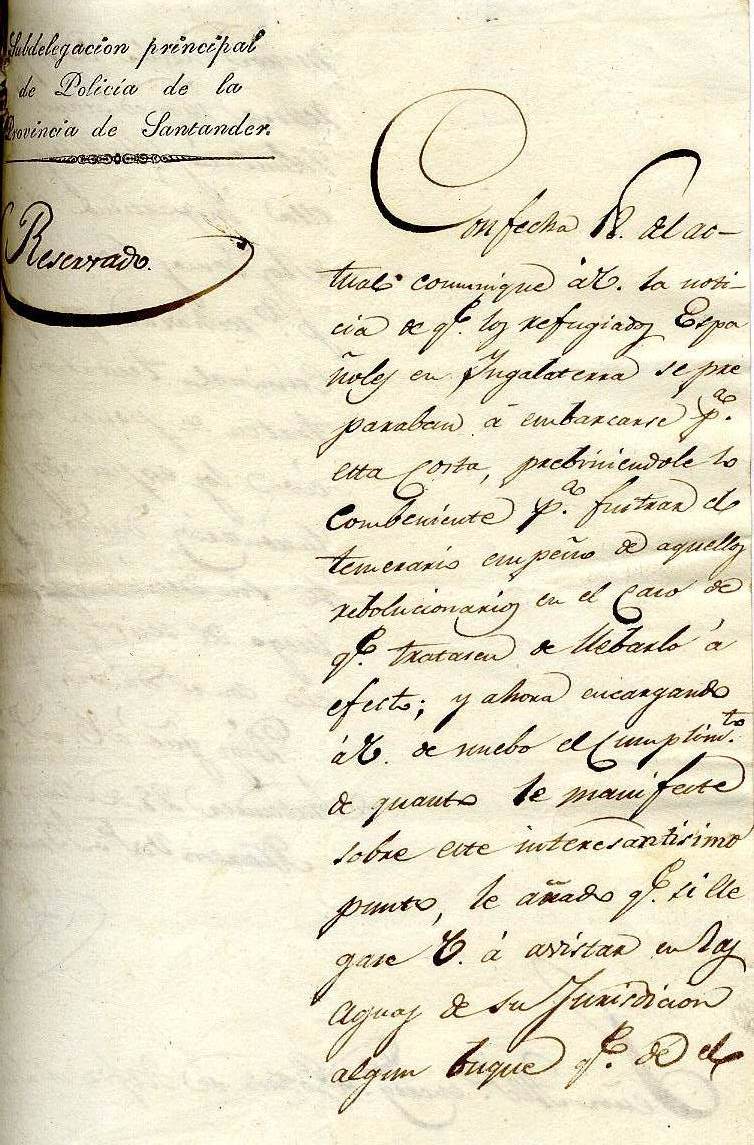 Subdelegacion principal
de Policía de la
Provincia de Santander.
Reservado.
Con fecha 18. del ac-
tual comuniqué á V. la noti-
cia de qe. los refugiados Espa
ñoles en Ynglaterra se pre
paraban á embarcarse pa.
esta Costa, prebiniendole lo
combeniente pa. frustrar el
temerario empeño de aquellos
rebolucionarios en el caso de
qe. tratasen de llebarlo á
efecto; y ahora encargando
á V. de nuebo el cumplimto.
de quanto le manifesté
sobre este interesantisimo
punto, le añado qe. si lle
gase V. á avistar en las
aguas de su Jurisdicion
algun buque qe. dé el